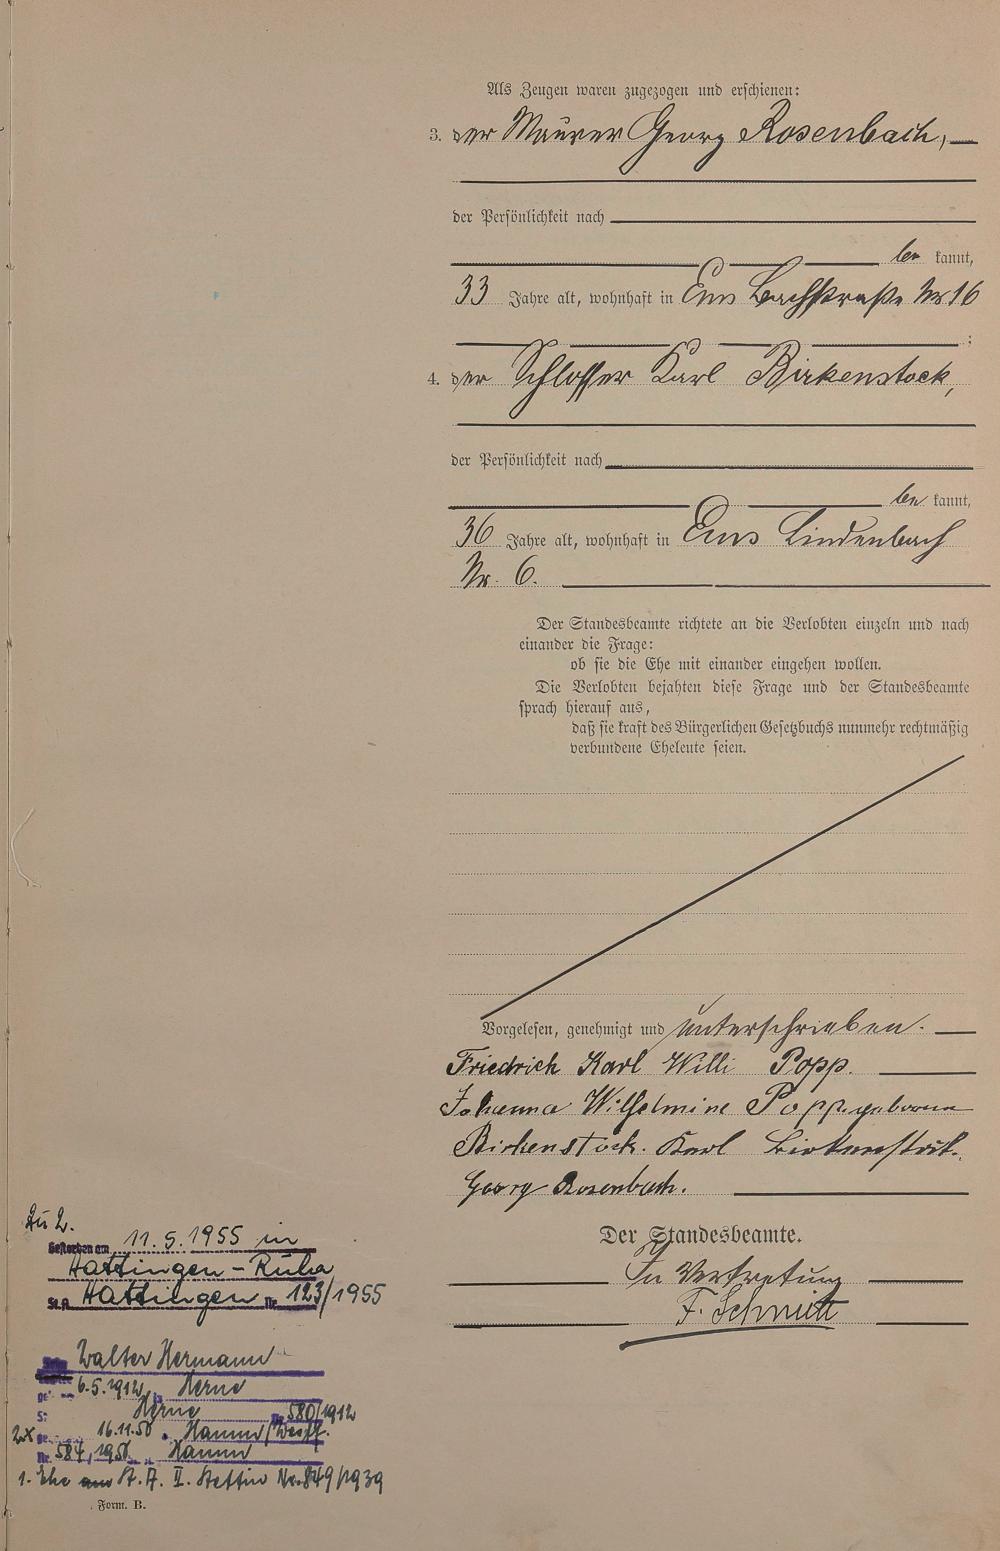 Als Zeugen waren zugezogen und erschienen:
3. der Maurer Georg Rosenbach,
der Persönlichkeit nach
be kannt,
33 Jahre alt, wohnhaft in Ems Bachstraße Nr 16
;
4. der Schlosser Karl Birkenstock,
der Persönlichkeit nach
be kannt,
36 Jahre alt, wohnhaft in Ems Lindenbach
Nr. 6.
Der Standesbeamte richtete an die Verlobten einzeln und nach
einander die Frage:
ob sie die Ehe mit einander eingehen wollen.
Die Verlobten bejahten diese Frage und der Standesbeamte
sprach hierauf aus,
daß sie kraft des Bürgerlichen Gesetzbuchs nunmehr rechtmäßig
verbundene Eheleute seien.
Vorgelesen, genehmigt und unterschrieben.
Friedrich Karl Willi Popp.
Johanna Wilhelmine Popp geborene
Birkenstock. Karl Birkenstock.
Georg Rosenbach.
Der Standesbeamte.
In Vertretung
F. Schmitt
Zu 2.
Gestorben am 11.5.1955 in
Hattingen-Ruhr
St.A. Hattingen Nr. 123/1955
Walter Hermann
6.5.1912 Herne
Herne Nr. 580/1912
2x 16.11.50 Hamm/Westf.
Nr. 584/1950 Hamm
1. Ehe St. A. II. Stettin Nr. 849/1939
Form. B.